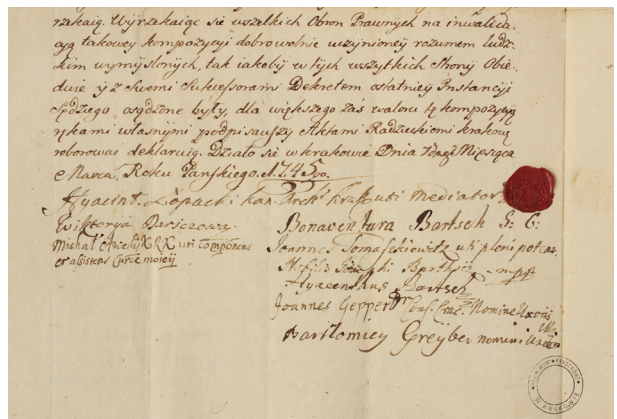 rzekaią. Wyrzekaiąc się wszelkich Obron Prawnych na inwalida-
cyą takowey kompozycyi dobrowolnie uczynioney rozumem ludz-
kim wymyslonych, tak iakoby w tych wszytkich Strony Obie-
dwie y z Swemi Sukcessorami Dekretem ostatniey Instancyi
Sędziego osądzone były, dla większego zaś waloru tę kompozycyą
rękami własnymi podpisauszy Aktami Radzieckiemi krakow:
roborować deklaruią. Działo się w krakowie Dnia Miesiąca
Marca, Roku Pańskiego 1745.
Hyacint Łopacki Kan. Arch: Krak: uti Mediator
Wiktorya Bartschowa
Bonaventura Bartsch S: C:
Michał RK uti componens
et assistens Curce moieÿ
Joannes Tomaszkiewitz uti plenipotens
mpp
Hyacenthus Bartsch
Joannes Geppert Cons. Crac. Nomine Uxoris
Bartlomiey Greyber nomine
ARCHIWUM PAŃSTWOWE
W KRAKOWIE